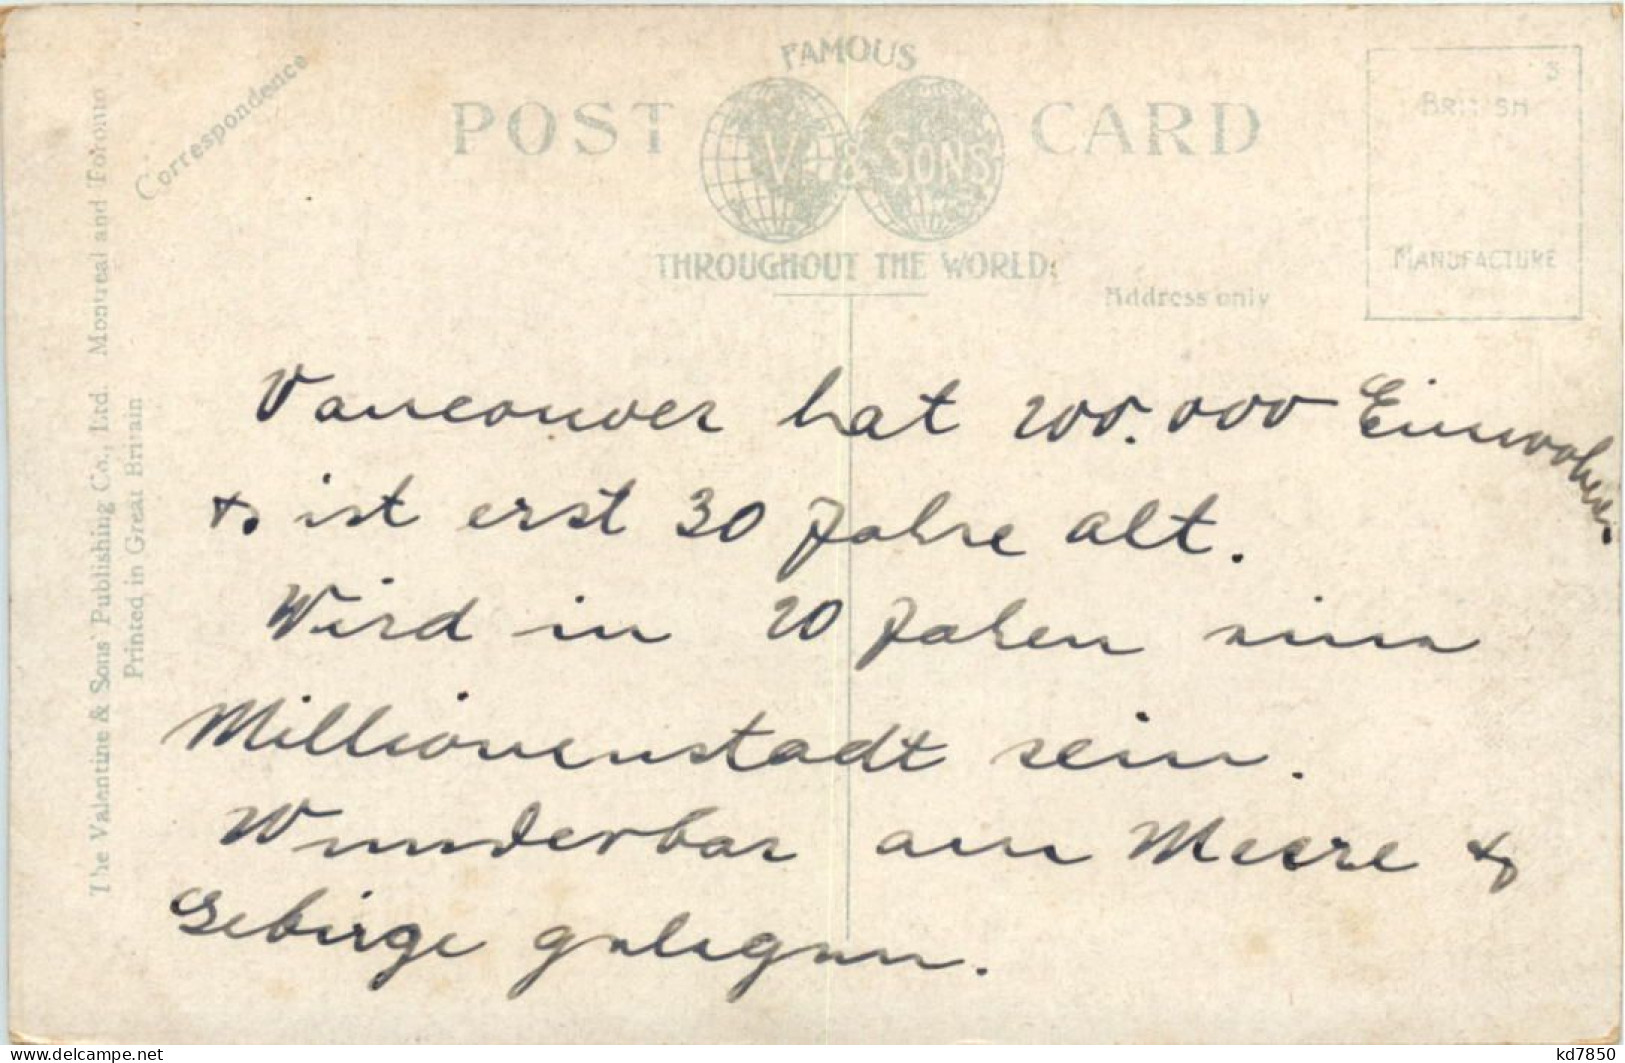 FAMOUS
POST CARD
V & SONS
THROUGHOUT THE WORLD.
Correspondence
Address only
3
BRITISH
MANUFACTURE
The Valentine & Sons' Publishing Co., Ltd. Montreal and Toronto
Printed in Great Britain
Vancouver hat 200.000 Einwohner
& ist erst 30 Jahre alt.
Wird in 20 Jahren eine
Millionenstadt sein.
Wunderbar am Meere &
Gebirge gelegen.
www.delcampe.net
kd7850